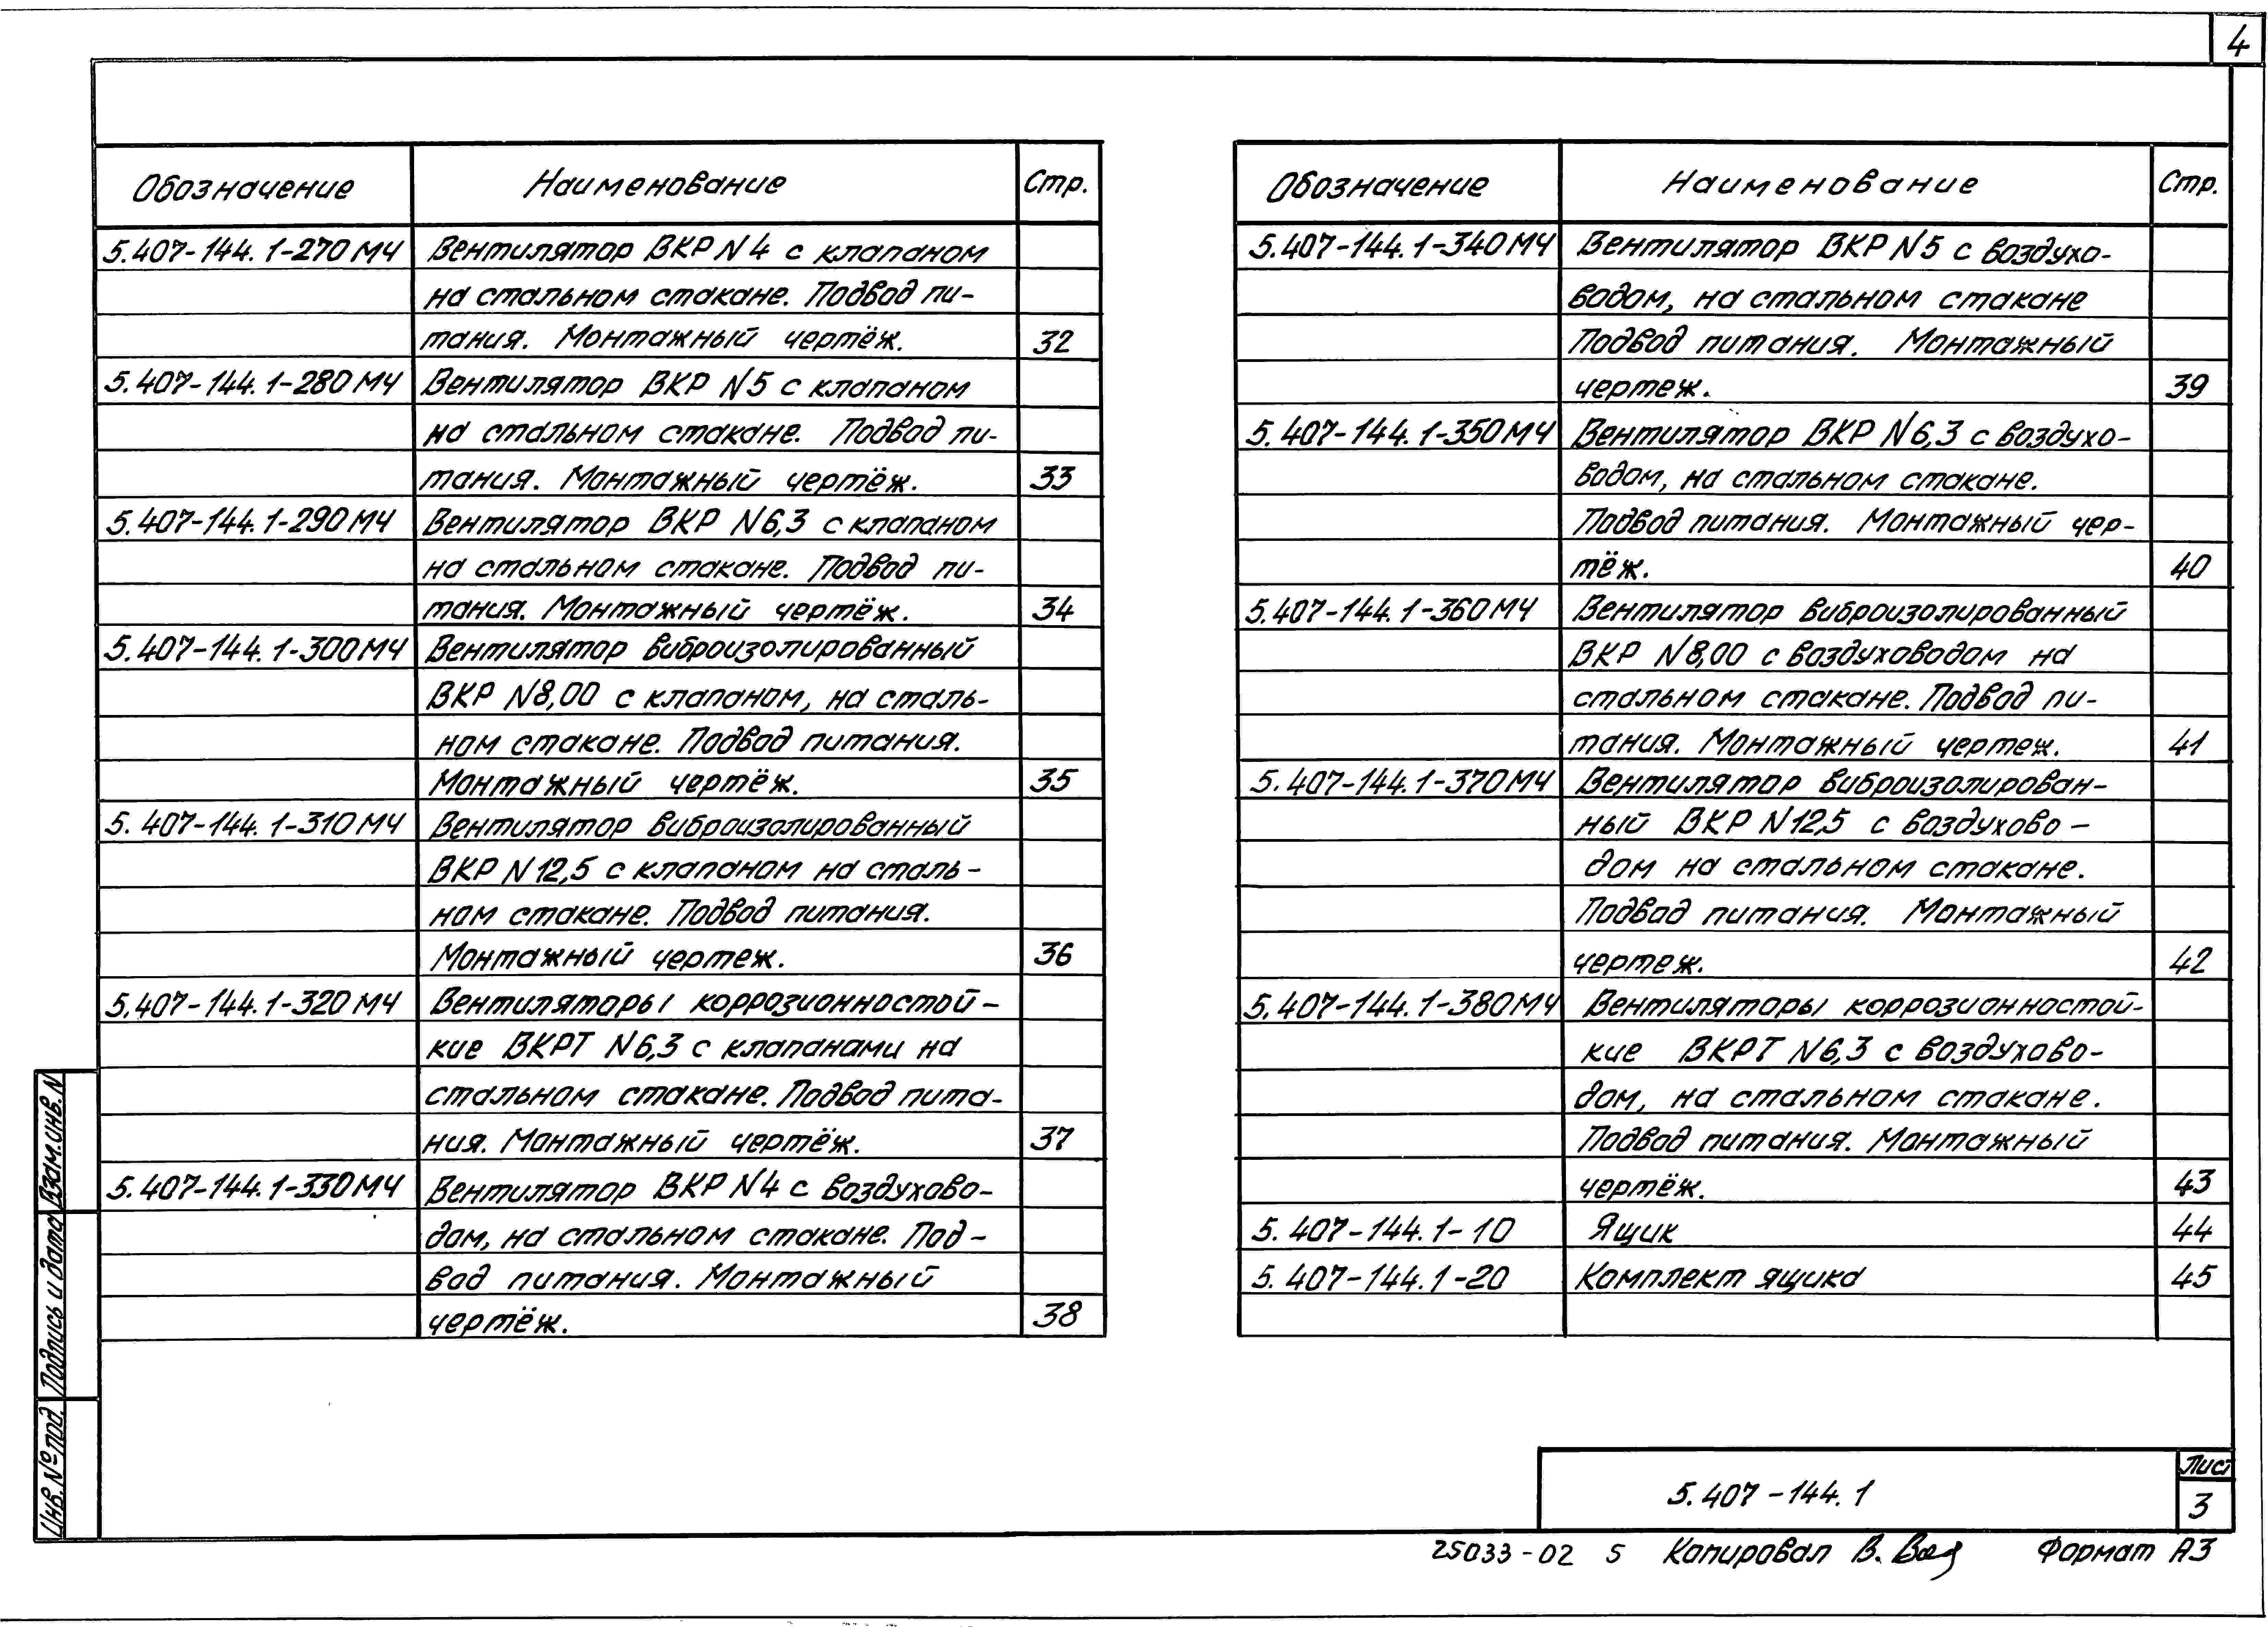 4
Обозначение Наименование Стр.
5.407-144.1-270МЧ Вентилятор ВКР N4 с клапаном
на стальном стакане. Подвод пи-
тания. Монтажный чертёж. 32
5.407-144.1-280МЧ Вентилятор ВКР N5 с клапаном
на стальном стакане. Подвод пи-
тания. Монтажный чертёж. 33
5.407-144.1-290МЧ Вентилятор ВКР N6,3 с клапаном
на стальном стакане. Подвод пи-
тания. Монтажный чертёж. 34
5.407-144.1-300МЧ Вентилятор виброизолированный
ВКР N8,00 с клапаном, на сталь-
ном стакане. Подвод питания.
Монтажный чертёж. 35
5.407-144.1-310МЧ Вентилятор виброизолированный
ВКР N12,5 с клапаном на сталь-
ном стакане. Подвод питания.
Монтажный чертеж. 36
5.407-144.1-320МЧ Вентиляторы коррозионностой-
кие ВКРТ N6,3 с клапанами на
стальном стакане. Подвод пита-
ния. Монтажный чертёж. 37
5.407-144.1-330МЧ Вентилятор ВКР N4 с воздухово-
дом, на стальном стакане. Под-
вод питания. Монтажный
чертёж. 38
Обозначение Наименование Стр.
5.407-144.1-340МЧ Вентилятор ВКР N5 с воздухо-
водом, на стальном стакане
Подвод питания. Монтажный
чертеж. 39
5.407-144.1-350МЧ Вентилятор ВКР N6,3 с воздухо-
водом, на стальном стакане.
Подвод питания. Монтажный чер-
тёж. 40
5.407-144.1-360МЧ Вентилятор виброизолированный
ВКР N8,00 с воздуховодом на
стальном стакане. Подвод пи-
тания. Монтажный чертеж. 41
5.407-144.1-370МЧ Вентилятор виброизолирован-
ный ВКР N12,5 с воздухово-
дом на стальном стакане.
Подвод питания. Монтажный
чертеж. 42
5.407-144.1-380МЧ Вентиляторы коррозионностой-
кие ВКРТ N6,3 с воздухово-
дом, на стальном стакане.
Подвод питания. Монтажный
чертёж. 43
5.407-144.1-10 Ящик 44
5.407-144.1-20 Комплект ящика 45
Взам.инв.N
Подпись и дата
Инв.№ под.
5.407-144.1
Лист
3
25033-02 5 Копировал В. Формат А3